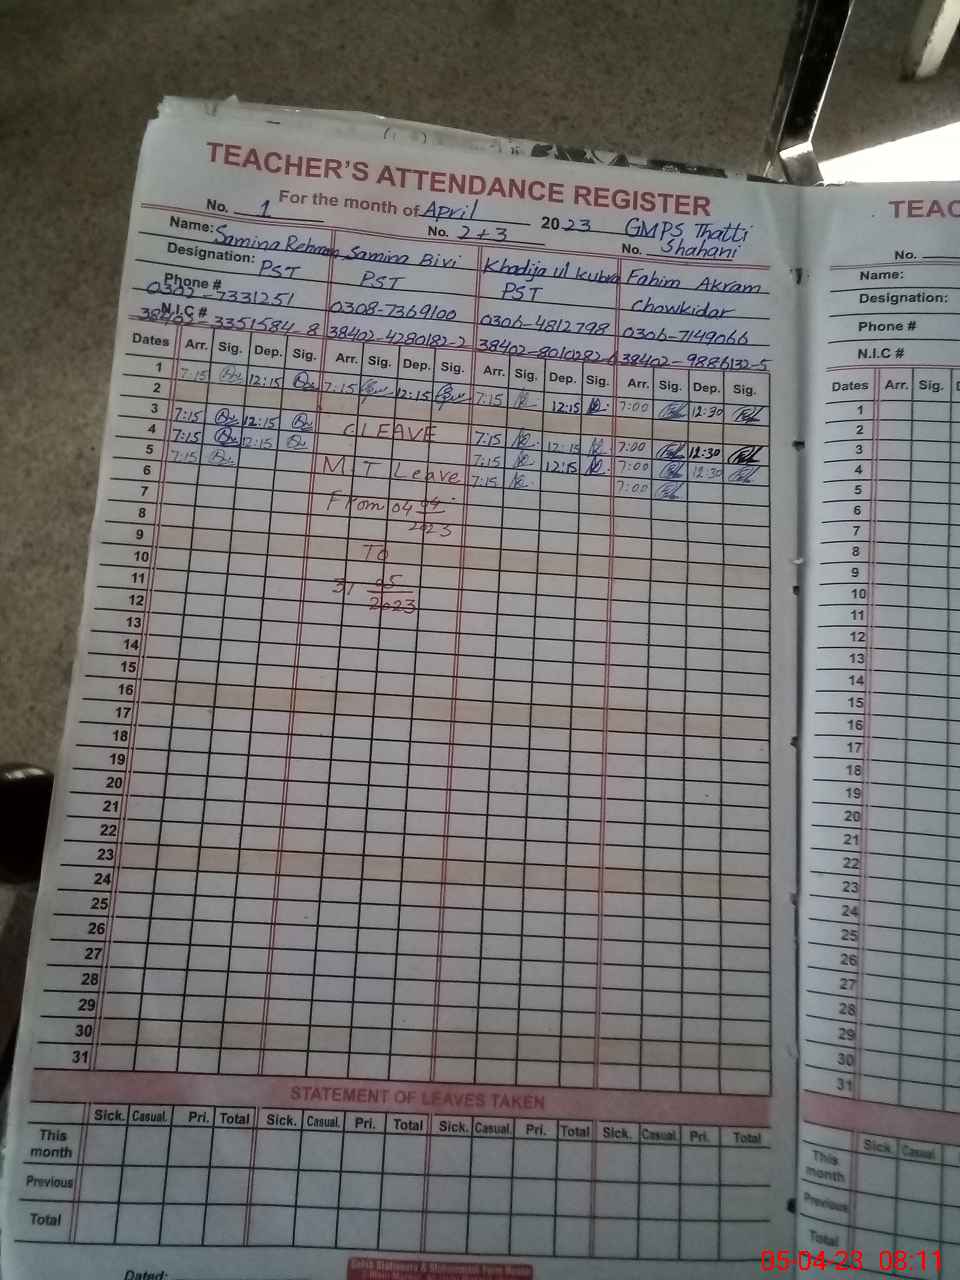 TEACHER'S ATTENDANCE REGISTER
For the month of April 2023 GMPS Thatti Shahani
No. 1 No. 2+3 No.
Name: Samina Rehman Samina Bivi Khadija ul Kubra Fahim Akram
Designation: PST PST PST Chowkidar
Phone # 0302-7331251 0308-7369100 0306-4812798 0306-7149066
N.I.C # 38402-3351584-8 38402-4280182-2 38402-8010282-6 38402-9886132-5
Dates Arr. Sig. Dep. Sig. Arr. Sig. Dep. Sig. Arr. Sig. Dep. Sig. Arr. Sig. Dep. Sig.
1 7:15 12:15 7:15 12:15 7:15 12:15 7:00 12:30
2
3 7:15 12:15 C LEAVE 7:15 12:15 7:00 12:30
4 7:15 12:15 7:15 12:15 7:00 12:30
5 7:15 M.T Leave 7:15 7:00
6
7 From 04 04
8 2023
9
10 TO
11 31 05
12 2023
13
14
15
16
17
18
19
20
21
22
23
24
25
26
27
28
29
30
31
STATEMENT OF LEAVES TAKEN
Sick. Casual. Pri. Total Sick. Casual. Pri. Total Sick. Casual. Pri. Total Sick. Casual. Pri. Total
This month
Previous
Total
Dated:
TEAC
No.
Name:
Designation:
Phone #
N.I.C #
Dates Arr. Sig. D
1
2
3
4
5
6
7
8
9
10
11
12
13
14
15
16
17
18
19
20
21
22
23
24
25
26
27
28
29
30
31
Sick. Casual
This month
Previous
Total
05-04-23 08:11